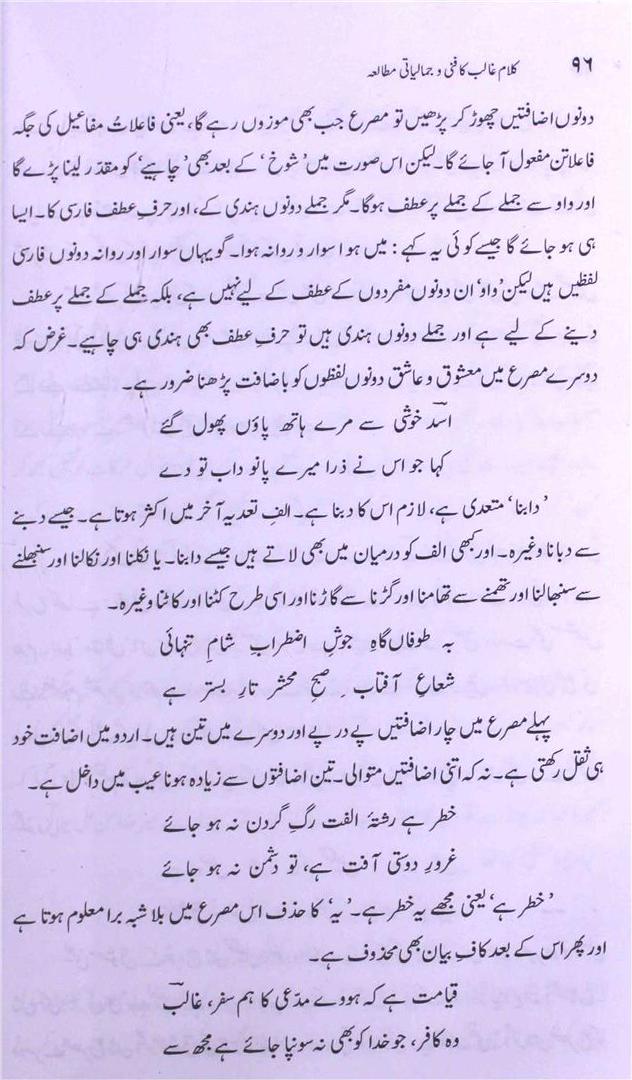 ۹۶ کلام غالب کا فنی و جمالیاتی مطالعہ
دونوں اضافتیں چھوڑ کر پڑھیں تو مصرع جب بھی موزوں رہے گا، یعنی فاعلاتُ مفاعیل کی جگہ
فاعلاتن مفعول آ جائے گا۔ لیکن اس صورت میں ’شوخ‘ کے بعد بھی ’چاہیے‘ کو مقدّر لینا پڑے گا
اور واو سے جملے کے جملے پر عطف ہوگا۔ مگر جملے دونوں ہندی کے، اور حرفِ عطف فارسی کا۔ ایسا
ہی ہو جائے گا جیسے کوئی یہ کہے: میں ہوا سوار و روانہ ہوا۔ گو یہاں سوار اور روانہ دونوں فارسی
لفظیں ہیں لیکن ’واو‘ ان دونوں مفردوں کے عطف کے لیے نہیں ہے، بلکہ جملے کے جملے پر عطف
دینے کے لیے ہے اور جملے دونوں ہندی ہیں تو حرفِ عطف بھی ہندی ہی چاہیے۔ غرض کہ
دوسرے مصرع میں معشوق و عاشق دونوں لفظوں کو باضافت پڑھنا ضرور ہے۔
اسدؔ خوشی سے مرے ہاتھ پاؤں پھول گئے
کہا جو اس نے ذرا میرے پانو داب تو دے
’دابنا‘ متعدی ہے، لازم اس کا دبنا ہے۔ الفِ تعدیہ آخر میں اکثر ہوتا ہے۔ جیسے دبنے
سے دبانا وغیرہ۔ اور کبھی الف کو درمیان میں بھی لاتے ہیں جیسے دابنا۔ یا نکلنا اور نکالنا اور سنبھلنے
سے سنبھالنا اور تھمنے سے تھامنا اور گڑنا سے گاڑنا اور اسی طرح کٹنا اور کاٹنا وغیرہ۔
بہ طوفاں گاہِ جوشِ اضطرابِ شامِ تنہائی
شعاعِ آفتابِ صبحِ محشر تارِ بستر ہے
پہلے مصرع میں چار اضافتیں پے در پے اور دوسرے میں تین ہیں۔ اردو میں اضافت خود
ہی ثقل رکھتی ہے۔ نہ کہ اتنی اضافتیں متوالی۔ تین اضافتوں سے زیادہ ہونا عیب میں داخل ہے۔
خطر ہے رشتۂ الفت رگِ گردن نہ ہو جائے
غرورِ دوستی آفت ہے، تو دشمن نہ ہو جائے
’خطر ہے‘ یعنی مجھے یہ خطر ہے۔ ’یہ‘ کا حذف اس مصرع میں بلا شبہ برا معلوم ہوتا ہے
اور پھر اس کے بعد کافِ بیان بھی محذوف ہے۔
قیامت ہے کہ ہووے مدّعی کا ہم سفر، غالبؔ
وہ کافر، جو خدا کو بھی نہ سونپا جائے ہے مجھ سے